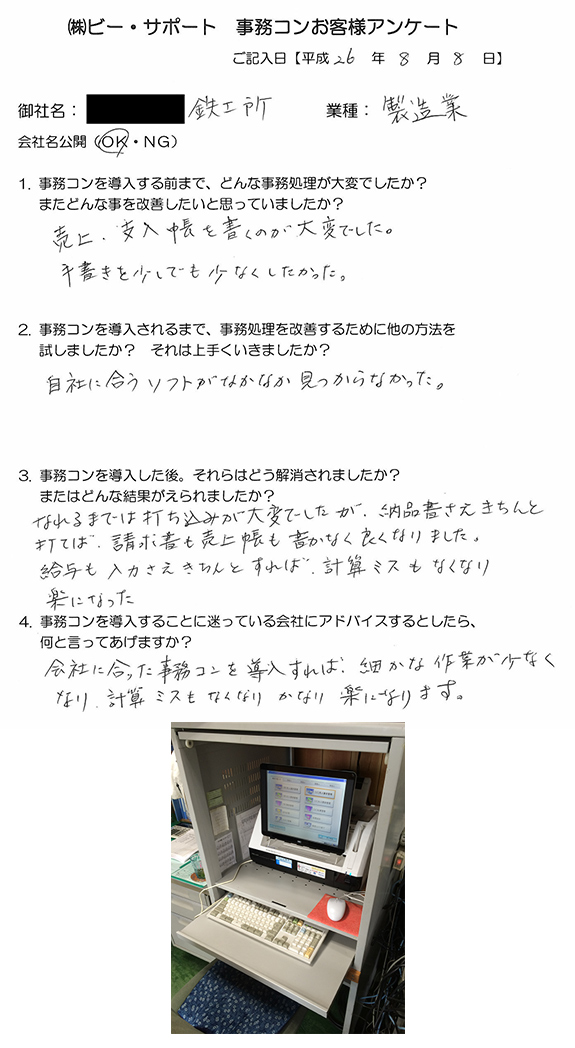 ㈱ビー・サポート 事務コンお客様アンケート
ご記入日【平成 26 年 8 月 8 日】
御社名： 鉄工所 業種： 製造業
会社名公開（OK・NG）
1. 事務コンを導入する前まで、どんな事務処理が大変でしたか？
またどんな事を改善したいと思っていましたか？
売上、支入帳を書くのが大変でした。
手書きを少しでも少なくしたかった。
2. 事務コンを導入されるまで、事務処理を改善するために他の方法を
試しましたか？ それは上手くいきましたか？
自社に合うソフトがなかなか見つからなかった。
3. 事務コンを導入した後。それらはどう解消されましたか？
またはどんな結果がえられましたか？
なれるまでは打ち込みが大変でしたが、納品書さえきちんと
打てば、請求書も売上帳も書かなく良くなりました。
給与も入力さえきちんとすれば、計算ミスもなくなり
楽になった
4. 事務コンを導入することに迷っている会社にアドバイスするとしたら、
何と言ってあげますか？
会社に合った事務コンを導入すれば、細かな作業が少なく
なり、計算ミスもなくなりかなり楽になります。